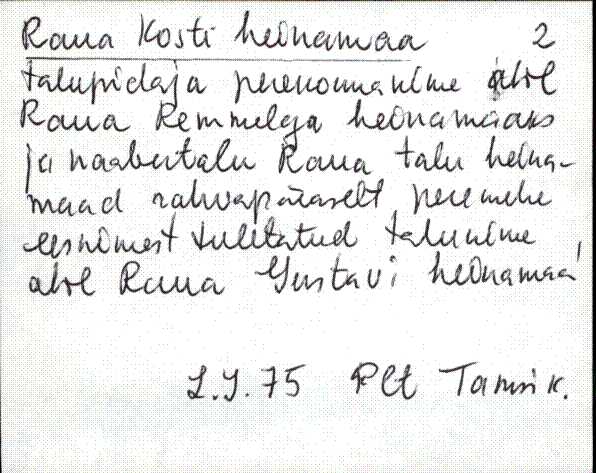 Raua Kosti heinamaa 2
talupidaja perekonnanime abil
Raua Remmelga heinamaaks
ja naabertalu Raua talu heina-
maad rahvapäraselt peremehe
eesnimest tuletatud talunime
abil Raua Gustavi heinamaa
75 Plt